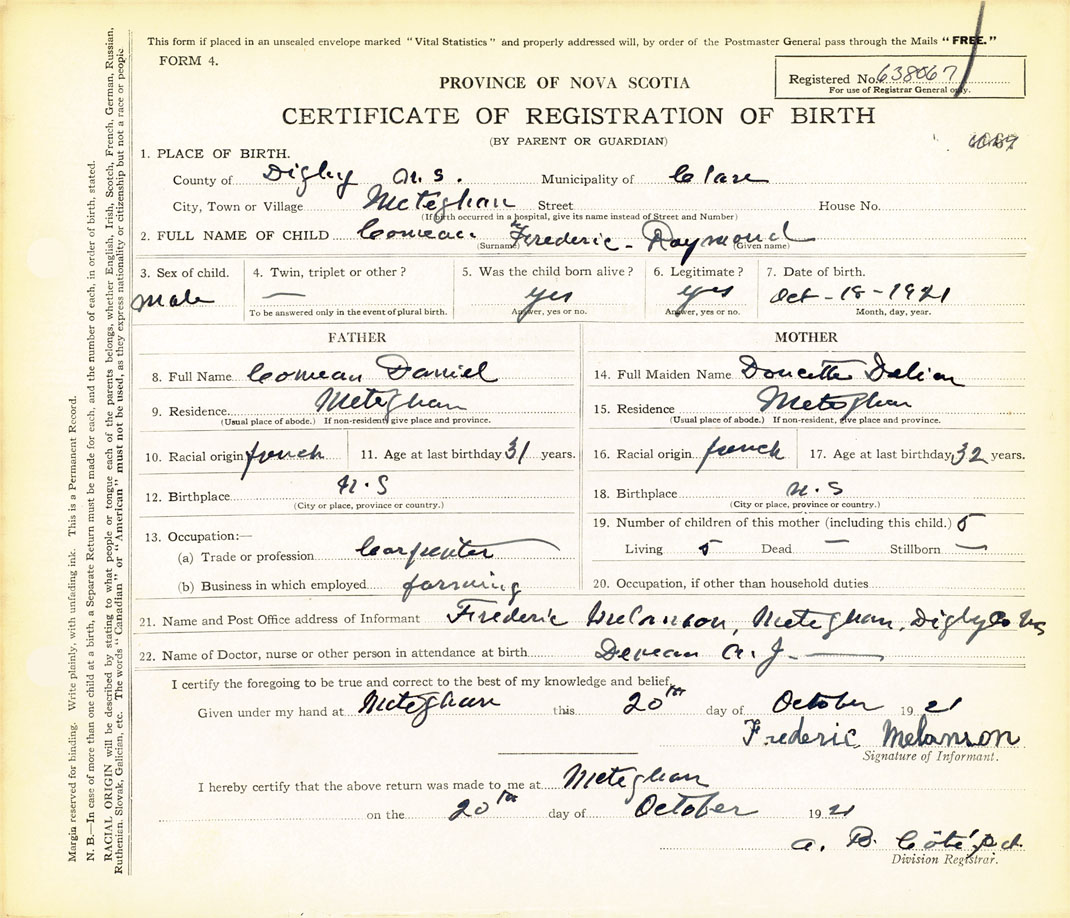 This form if placed in an unsealed envelope marked "Vital Statistics" and properly addressed will, by order of the Postmaster General pass through the Mails "FREE."
FORM 4.
PROVINCE OF NOVA SCOTIA
Registered No. 638067
For use of Registrar General only.
CERTIFICATE OF REGISTRATION OF BIRTH
(BY PARENT OR GUARDIAN)
1. PLACE OF BIRTH.
County of Digby N.S. Municipality of Clare
City, Town or Village Meteghan Street House No.
(If birth occurred in a hospital, give its name instead of Street and Number)
2. FULL NAME OF CHILD Comeau Frederic - Raymond
(Surname) (Given name)
3. Sex of child. 4. Twin, triplet or other? 5. Was the child born alive? 6. Legitimate? 7. Date of birth.
male — yes yes Oct - 18 - 1921
To be answered only in the event of plural birth. Answer, yes or no. Answer, yes or no. Month, day, year.
FATHER
8. Full Name Comeau Daniel
9. Residence Meteghan
(Usual place of abode.) If non-resident, give place and province.
10. Racial origin french 11. Age at last birthday 31 years.
12. Birthplace N.S
(City or place, province or country.)
13. Occupation:—
(a) Trade or profession Carpenter
(b) Business in which employed farming
MOTHER
14. Full Maiden Name Doucette
15. Residence Meteghan
(Usual place of abode.) If non-resident, give place and province.
16. Racial origin french 17. Age at last birthday 32 years.
18. Birthplace N.S
(City or place, province or country.)
19. Number of children of this mother (including this child.) 5
Living 5 Dead — Stillborn —
20. Occupation, if other than household duties
21. Name and Post Office address of Informant Frederic Melanson, Meteghan, Digby Co NS
22. Name of Doctor, nurse or other person in attendance at birth Deveau A. J. —
I certify the foregoing to be true and correct to the best of my knowledge and belief,
Given under my hand at Meteghan this 20th day of October 1921
Frederic Melanson
Signature of Informant.
I hereby certify that the above return was made to me at Meteghan
on the 20th day of October 1921
A. B. Côté pd.
Division Registrar.
Margin reserved for binding. Write plainly, with unfading ink. This is a Permanent Record.
N. B.—In case of more than one child at a birth, a Separate Return must be made for each, and the number of each, in order of birth, stated.
RACIAL ORIGIN will be described by stating to what people or tongue each of the parents belongs, whether English, Irish, Scotch, French, German, Russian,
Ruthenian, Slovak, Galician, etc. The words "Canadian" or "American" must not be used, as they express nationality or citizenship but not a race or people